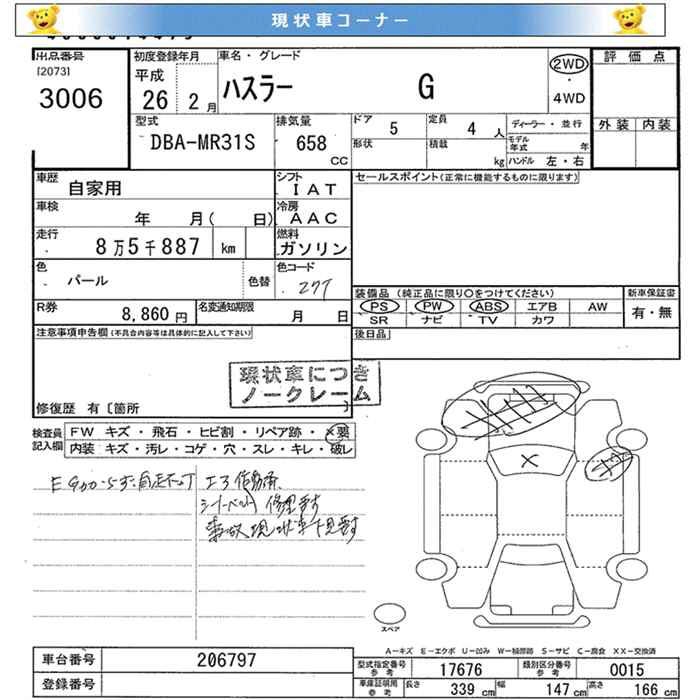 現状車コーナー
出品番号 初度登録年月 車名・グレード 2WD ・ 4WD 評価点
[2073]
3006 平成 26 2月 ハスラー G
外装 内装
型式 DBA-MR31S 排気量 658 CC ドア 5 定員 4 人 ディーラー・並行
形状 積載 kg モデル年式 年 ハンドル 左・右
車歴 自家用 シフト IAT セールスポイント(正常に機能するものに限ります)
車検 年 月( 日) 冷房 AAC
走行 8万5千887 km 燃料 ガソリン
色 パール 色替 色コード Z7T
装備品(純正品に限り○をつけてください) 新車保証書
PS PW ABS エアB AW 有・無
SR ナビ TV カワ
R券 8,860円 名変通知期限 月 日
注意事項申告欄(不具合内容等は具体的に記入して下さい) 後日品
現状車につき
ノークレーム
修復歴 有〔箇所 〕
検査員記入欄 FW キズ・飛石・ヒビ割・リペア跡・×要
内装 キズ・汚レ・コゲ・穴・スレ・キレ・破レ
エアB作動済
シートベルト修理要す
事故現状車下見要す
スペア
A-キズ E-エクボ U-凹み W-補修跡 S-サビ C-腐食 XX-交換済
車台番号 206797
登録番号
型式指定番号 参考 17676 類別区分番号 参考 0015
車庫証明用 参考 長さ 339 cm 幅 147 cm 高さ 166 cm